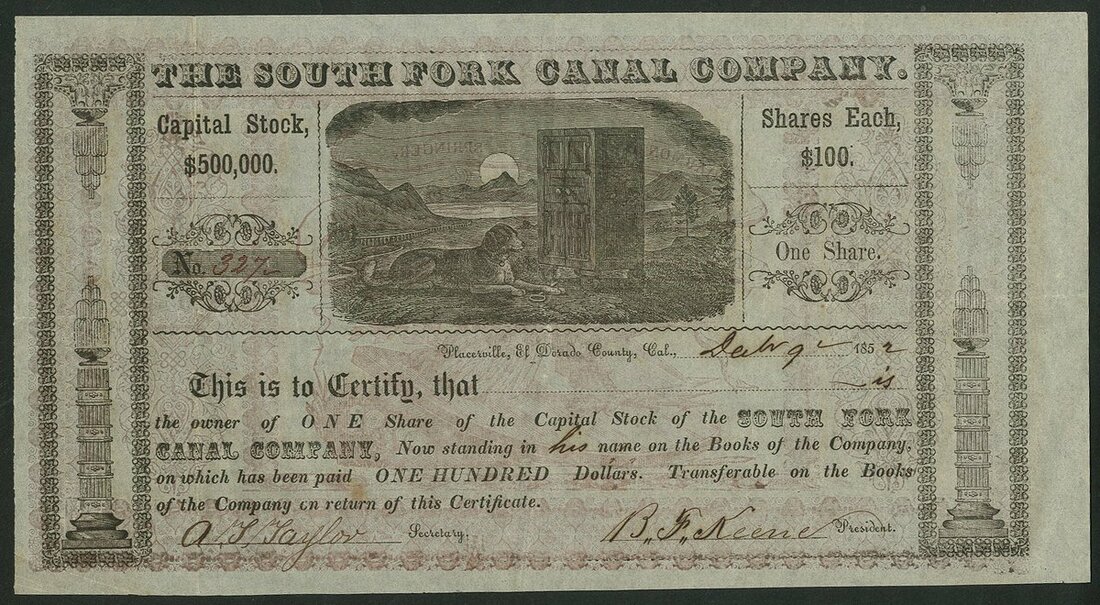 THE SOUTH FORK CANAL COMPANY.
Capital Stock,
$500,000.
Shares Each,
$100.
No. 327
One Share.
Placerville, El Dorado County, Cal., 9 1852
This is to Certify, that is
the owner of ONE Share of the Capital Stock of the SOUTH FORK
CANAL COMPANY, Now standing in his name on the Books of the Company,
on which has been paid ONE HUNDRED Dollars. Transferable on the Books
of the Company on return of this Certificate.
Taylor Secretary. B. F. Keene President.